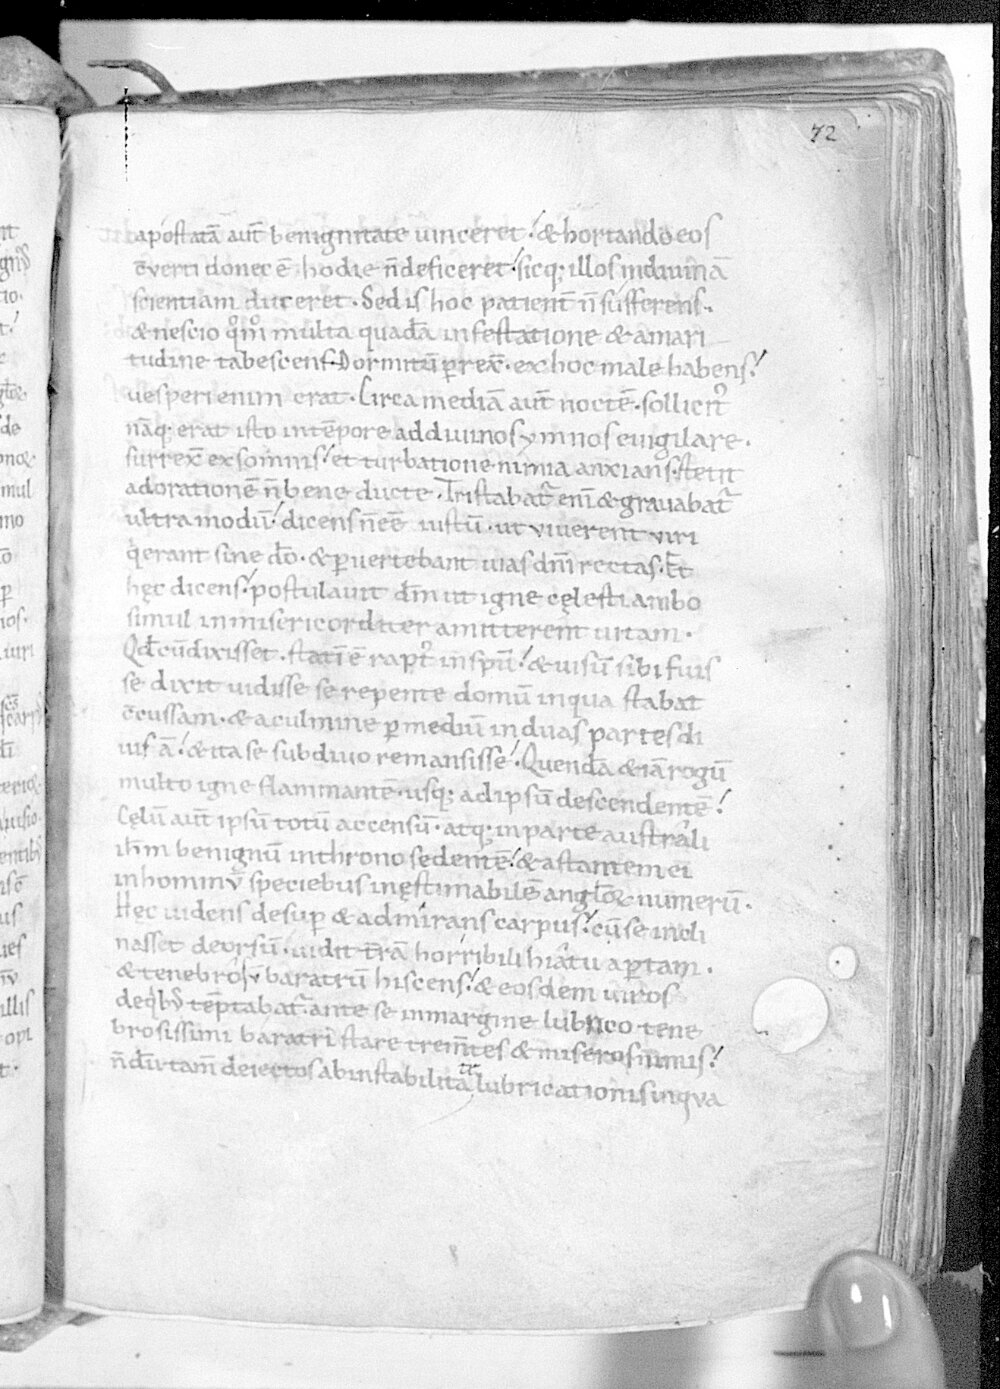 72
apostatā aut̄ benignitate uinceret! & hortando eos
c̄verti donec ē hodie n̄ deficeret! sicq; illos in diuinā
scientiam duceret. Sed is hoc patient̄ n̄ sufferens.
& nescio qͦmͦ multa quadā infestatione & amari
tudine tabescens. Dormitū prex̄. ex hoc male habens!
uesperi enim erat. Circa mediā aut̄ noctē. sollicit᷒
nāq; erat isto in tēpore ad diuinos ymnos euigilare.
surrex̄ ex somnis! et turbatione nimia anxians. stetit
ad orationē n̄ bene ducte. Tristabat᷒ eni̅ & grauabat᷒
ultra modū! dicens n̄ eē iustū. ut viverent viri
q̇ erant sine dō. & ꝑvertebant uias dn̄i rectas. Et
hęc dicens! postulauit dm̄ ut igne cęlesti ambo
simul in misericorditer amitterent uitam.
Qd̄ cū dixisset. statī ē rapt᷒ in spū! & uisū sibi fuis
se dixit uidisse se repente domū in qua stabat
c̄cussam. & a culmine ꝑ mediū in duas partes di
uisā! & ita se sub diuo remansisse! Quendā & iā rogū
multo igne flammantē. usq; ad ipsū descendentē!
Cęlū aut̄ ipsū totū accensū. atq; in parte australi
ih̄m benignū in throno sedentē! & astantem ei
in hominū speciebus inęstimabilē angloꝝ numerū.
Hęc uidens desuꝑ & admirans carpus! cū se incli
nasset deorsū. uidit t̄rā horribili hiatu aꝑtam.
& tenebrosū baratrū hiscens! & eosdem uiros
de qͥb; tēptabat᷒. ante se in margine lubrico tene
brosissimi baratri stare trem̄tes & miseros nimis!
n̄dū tam̄ deiectos ab instabilitate lubricationis in qua